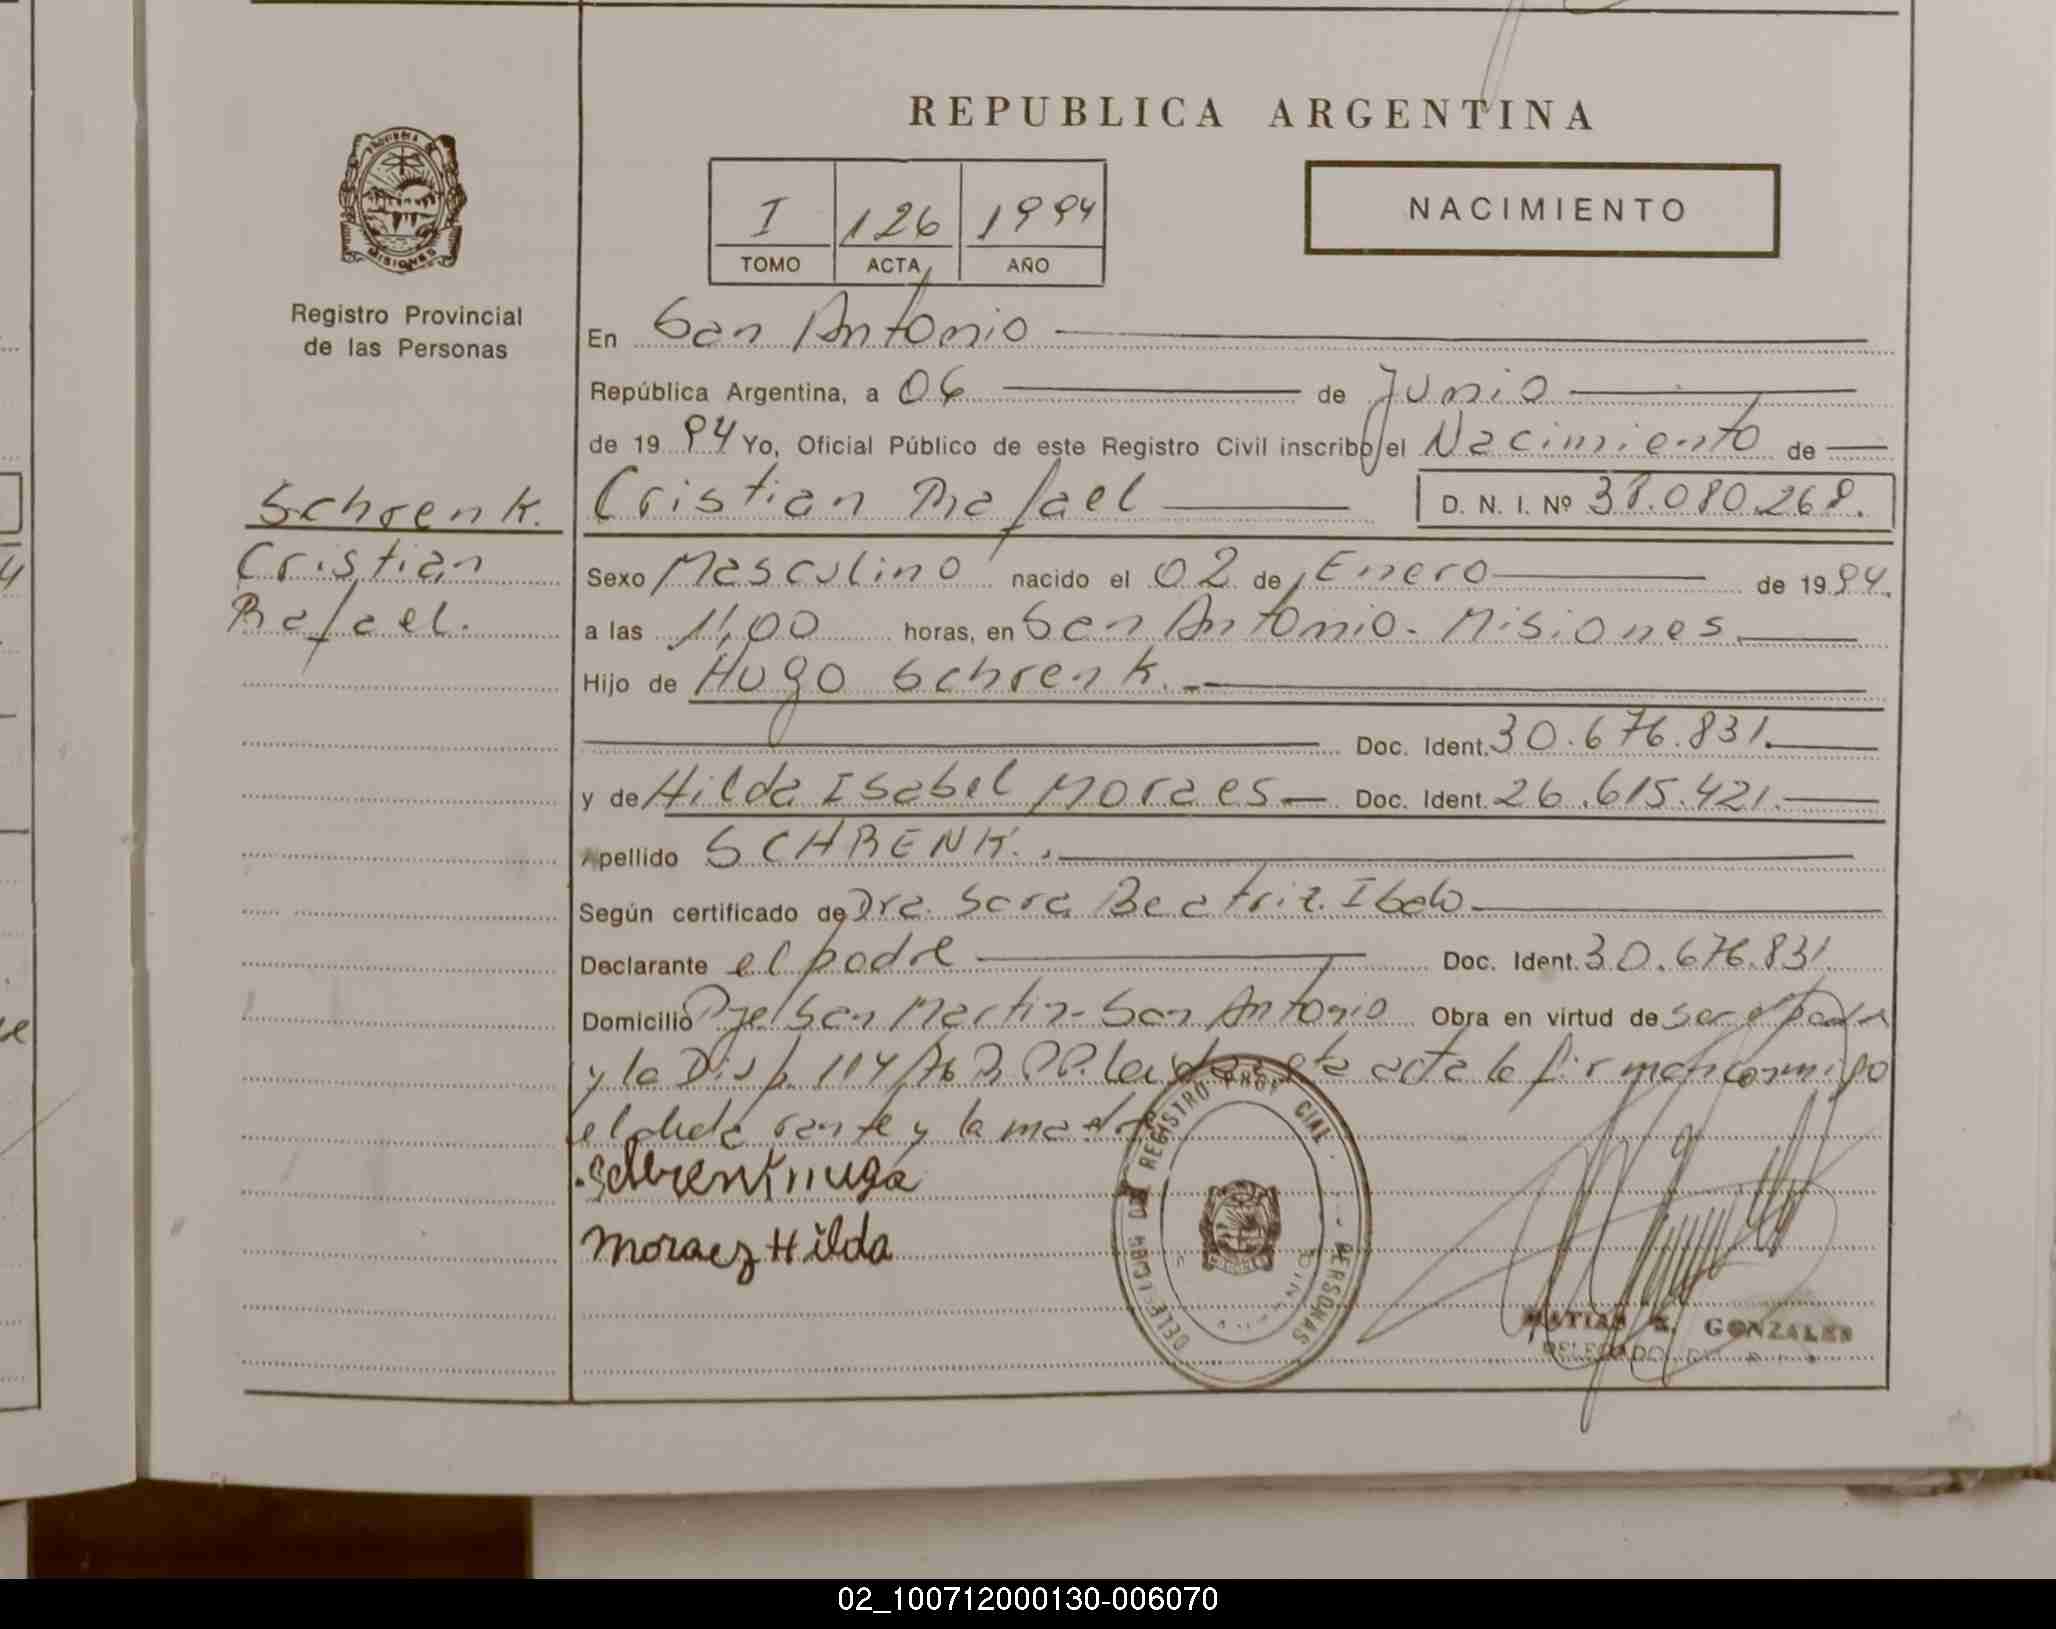 REPUBLICA ARGENTINA
I 126 1994
TOMO ACTA AÑO
NACIMIENTO
PROVINCIA
MISIONES
Registro Provincial
de las Personas
Schrenk.
Cristian
Rafael.
En San Antonio
República Argentina, a 06 de Junio
de 1994 Yo, Oficial Público de este Registro Civil inscribo el Nacimiento de
Cristian Rafael D. N. I. Nº 38.080.268.
Sexo Masculino nacido el 02 de Enero de 1994.
a las 11,00 horas, en San Antonio - Misiones.
Hijo de Hugo Schrenk.
Doc. Ident. 30.676.831.
y de Hilda Isabel Moraes Doc. Ident. 26.615.421.
Apellido SCHRENK.
Según certificado de Dra. Sara Beatriz Ibalo
Declarante el padre Doc. Ident. 30.676.831
Domicilio Pje San Martin - San Antonio Obra en virtud de ser el padre
y la Disp. 114/76 leida esta acta la firman conmigo
el declarante y la madre
Schrenk Hugo
Moraez Hilda
REGISTRO
PERSONAS
MATIAS GONZALES
DELEGADO
02_100712000130-006070